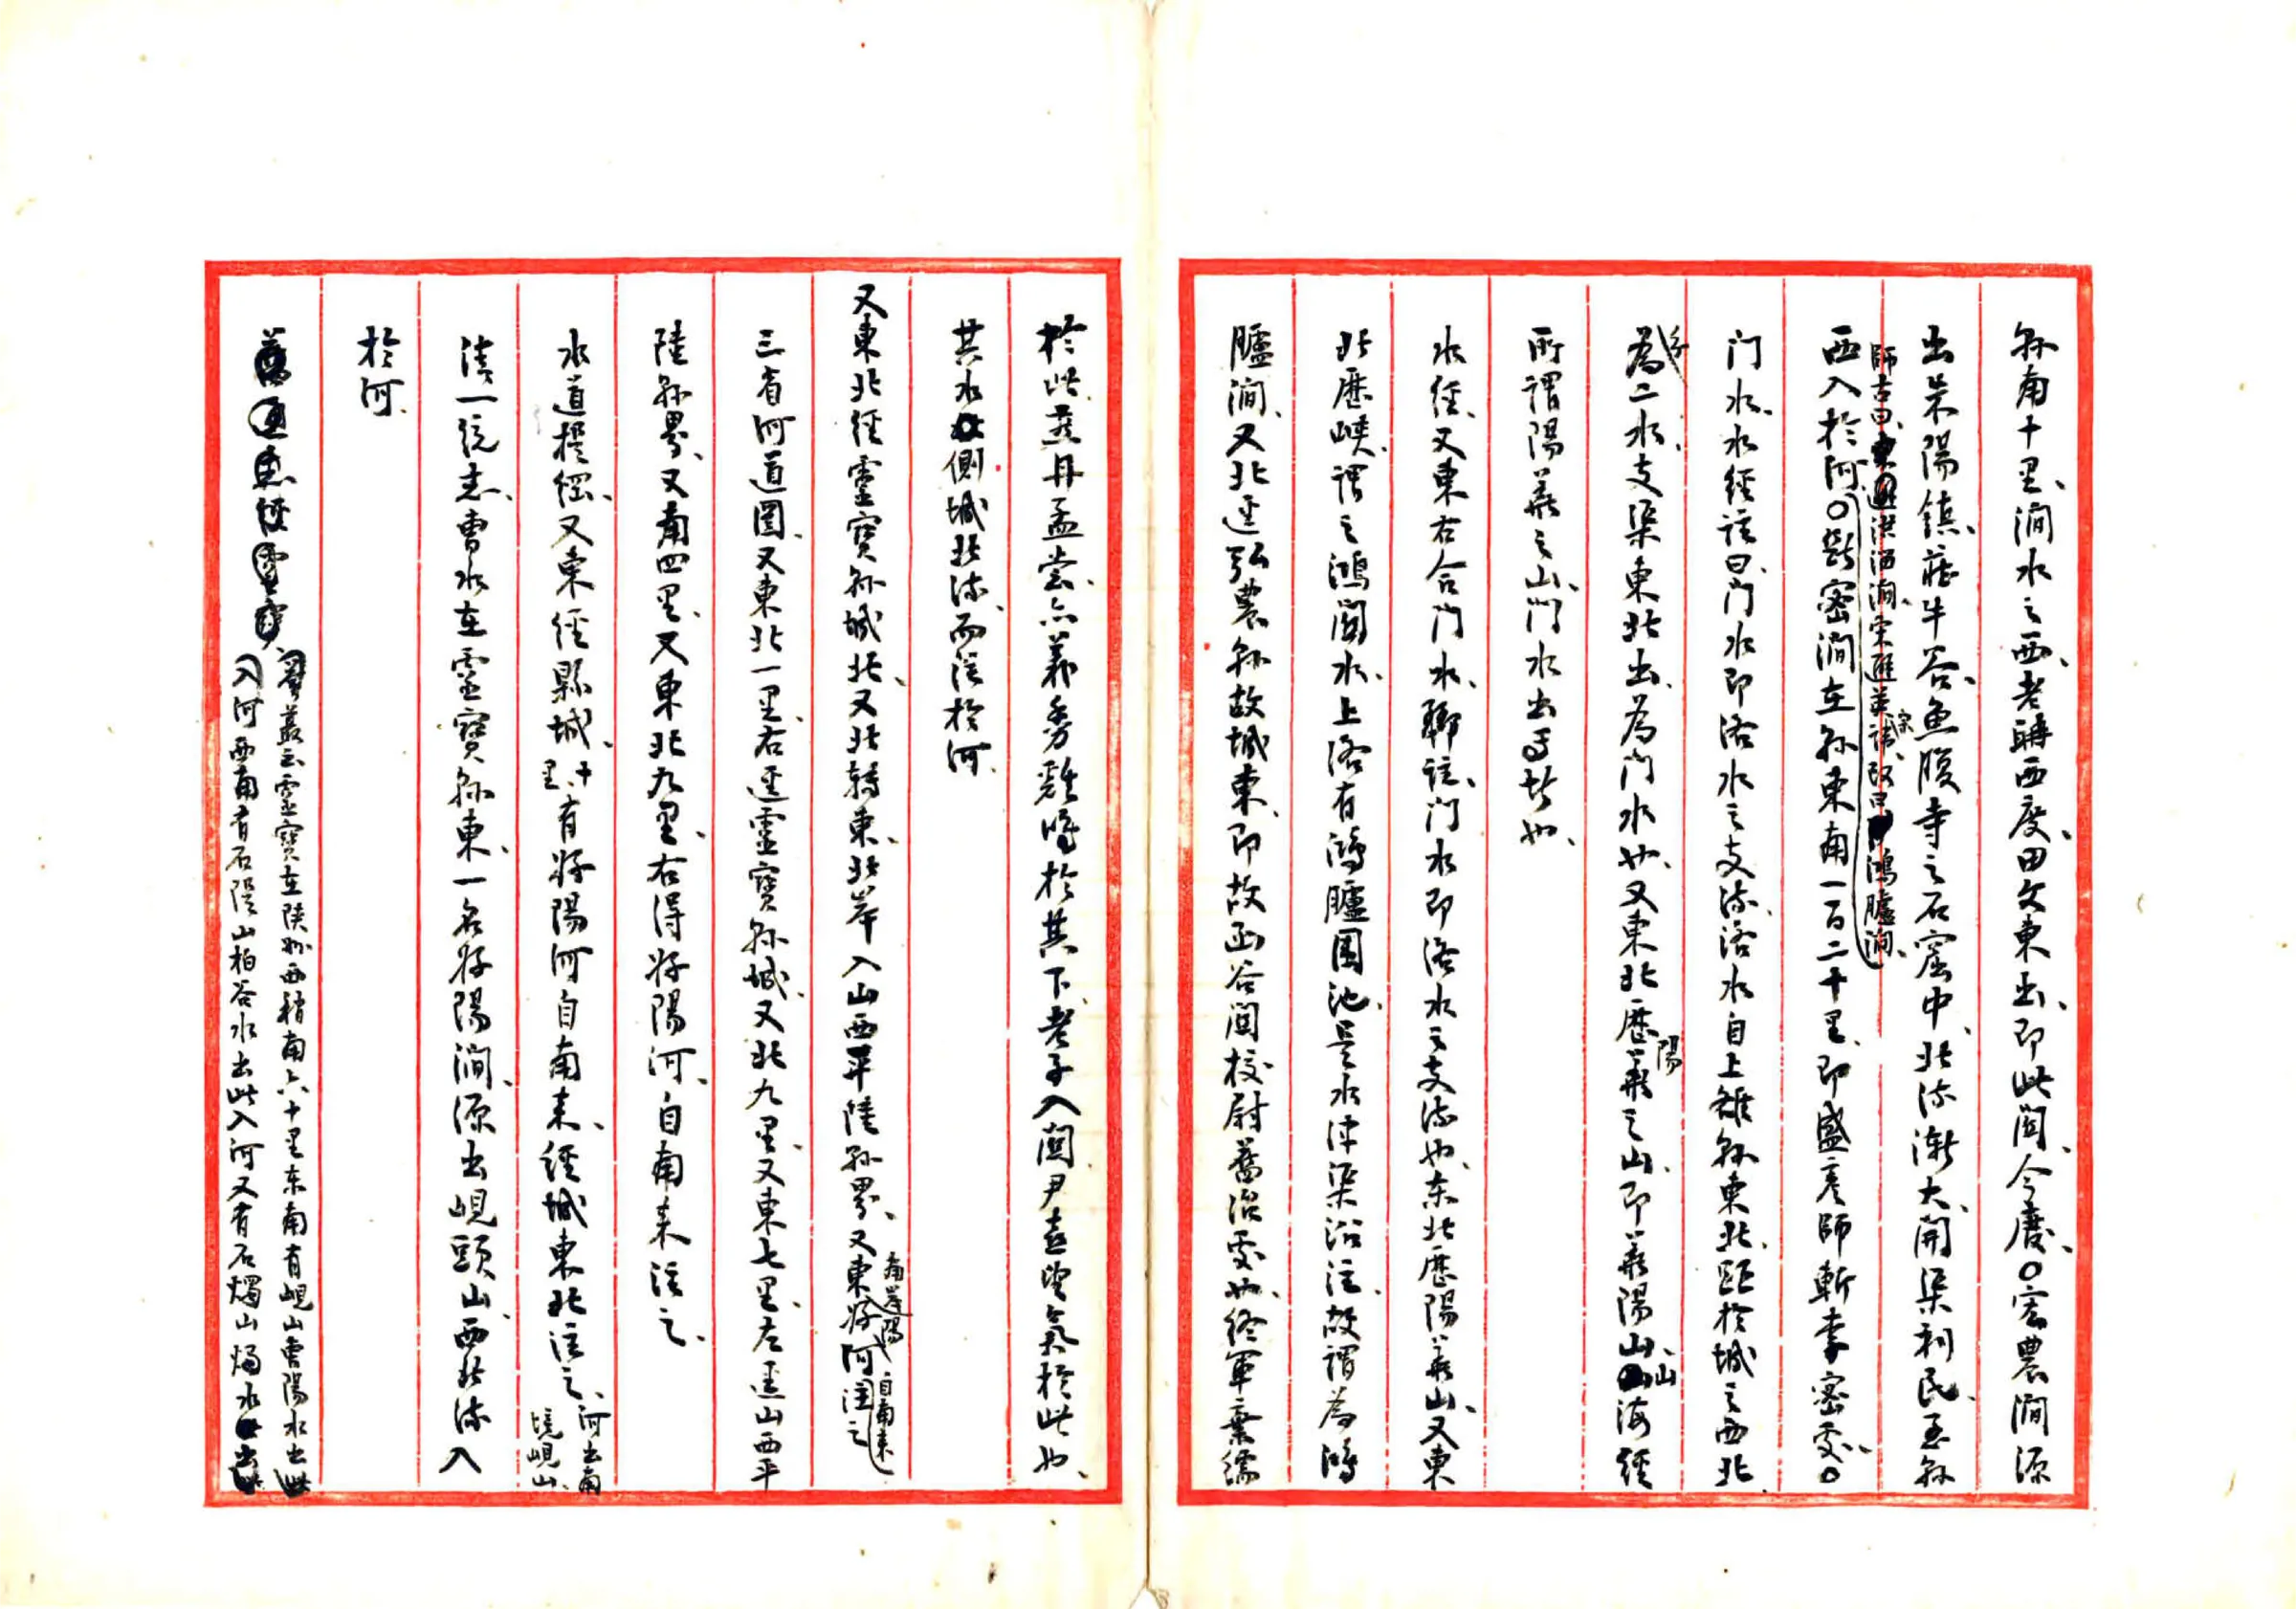 縣南十里、澗水之西、老聃西度、田文東出、即此関、今廢、○宏農澗源
出朱陽鎮、莊牛谷、魚腹寺之石窟中、北流漸大、開渠利民、至縣
西入於河、○斷密澗在縣東南一百二十里、即盛彥師斬李密處、○
師古曰、洪溜澗、宋避諱、改曰鴻臚澗、
门水、水經註曰、门水即洛水之支流、洛水自上雒縣東北、距於城之西北
分為二水、支渠東北出、為门水也、又東北歷陽華之山、即華陽山、山海經
所謂陽華之山、门水出焉者也、
水經、又東右合门水、酈註、门水即洛水之支流也、东北歷陽華山、又東
北歷峽、謂之鴻関水、上洛有鴻臚圍池、是水津渠沿注、故謂為鴻
臚澗、又北逕弘農縣故城東、即故函谷関校尉舊治處也、終軍棄繻
於此、燕丹孟嘗、亦義動雞鳴於其下、老子入関、尹喜望氣於此也、
其水側城北流、而注於河、
又東北經靈寶縣城北、又北轉東、北岸入山西平陸縣界、又東好陽河自南來注之
三省河道圖、又東北一里、右逕靈寶縣城、又北九里、又東七里、左逕山西平
陸縣界、又南四里、又東北九里、右得好陽河、自南來注之、
水道提綱、又東經縣城、十里、有好陽河自南來、經城東北注之、河出南境峴山、
清一統志、曹水在靈寶縣東、一名好陽澗、源出峴頭山、西北流入
於河、
叢云靈寶在陝州西稍南六十里东南有峴山曹陽水出此
入河西南有石隄山柏谷水出此入河又有石燭山燭水出此